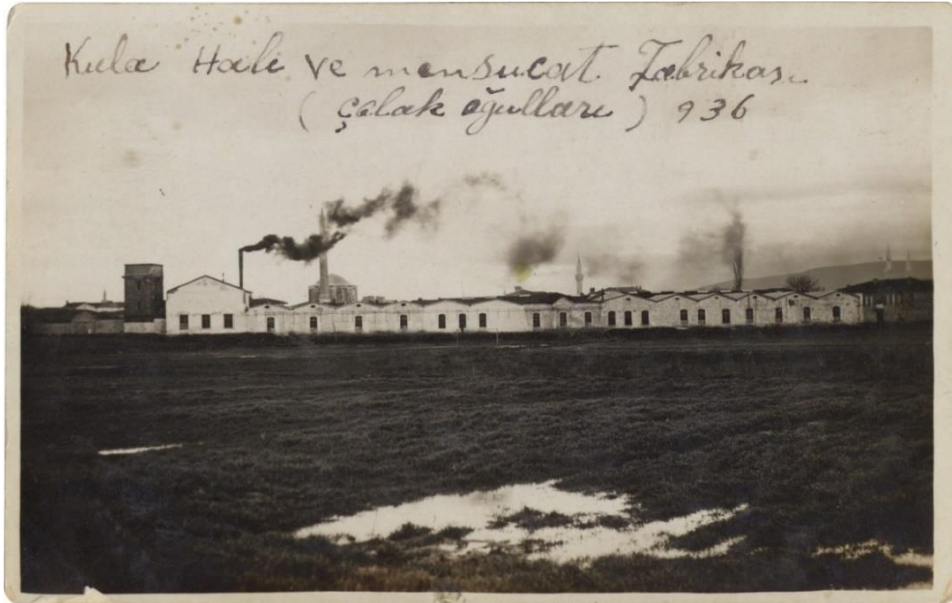 Kula Halı ve mensucat Fabrikası
( çolak oğulları ) 936